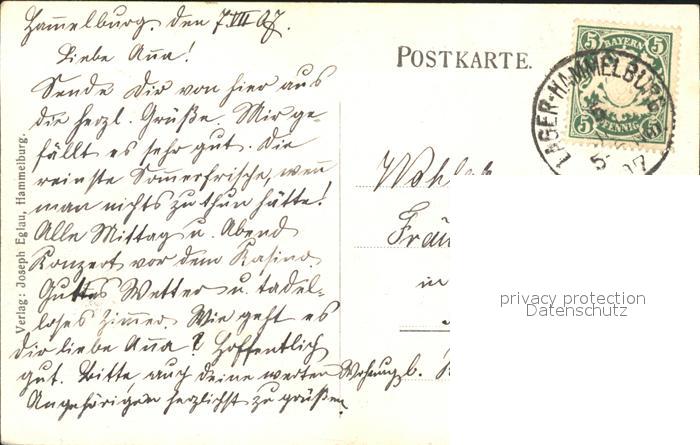 Hammelburg, den 7.VII 07.
Liebe Anna!
Sende Dir von hier aus
die herzl. Grüße. Mir ge-
fällt es sehr gut. Die
reinste Sommerfrische, wenn
man nichts zu thun hätte!
Alle Mittag u. Abend
Konzert vor dem Kasino.
Gutes Wetter u. tadel-
loses Zimmer. Wie geht es
Dir liebe Anna? Hoffentlich
gut. Bitte auch deine werten
Angehörigen herzlichst zu grüßen.
Verlag: Joseph Eglau, Hammelburg.
POSTKARTE.
5 BAYERN 5
5 PFENNIG 5
LAGER-HAMMELBURG
07
in
Wohnung b.
privacy protection
Datenschutz